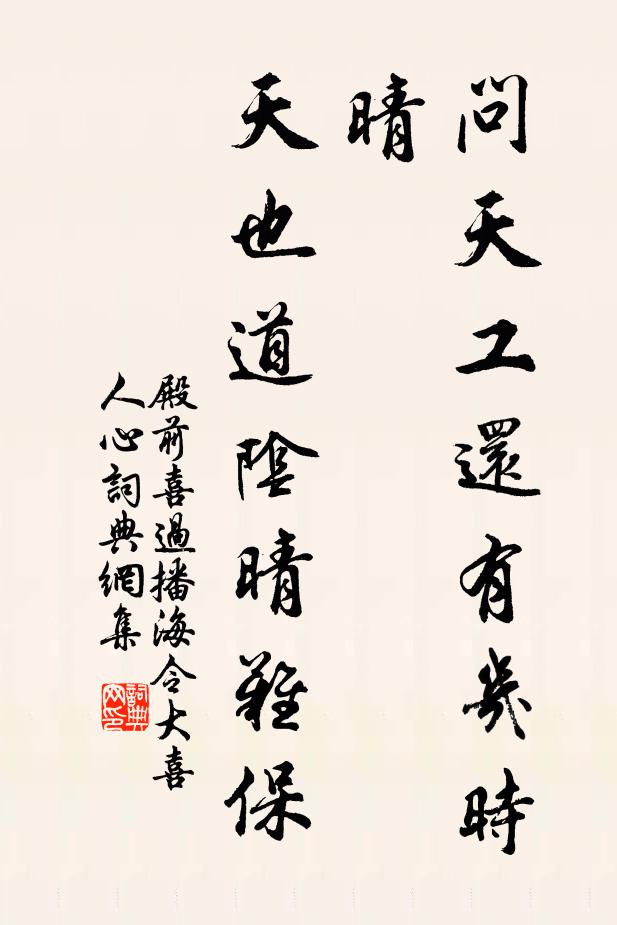 問天工還有幾時
晴
天也道陰晴難保
殿前喜過播海令大喜
人心詞典網集
詞典
网印